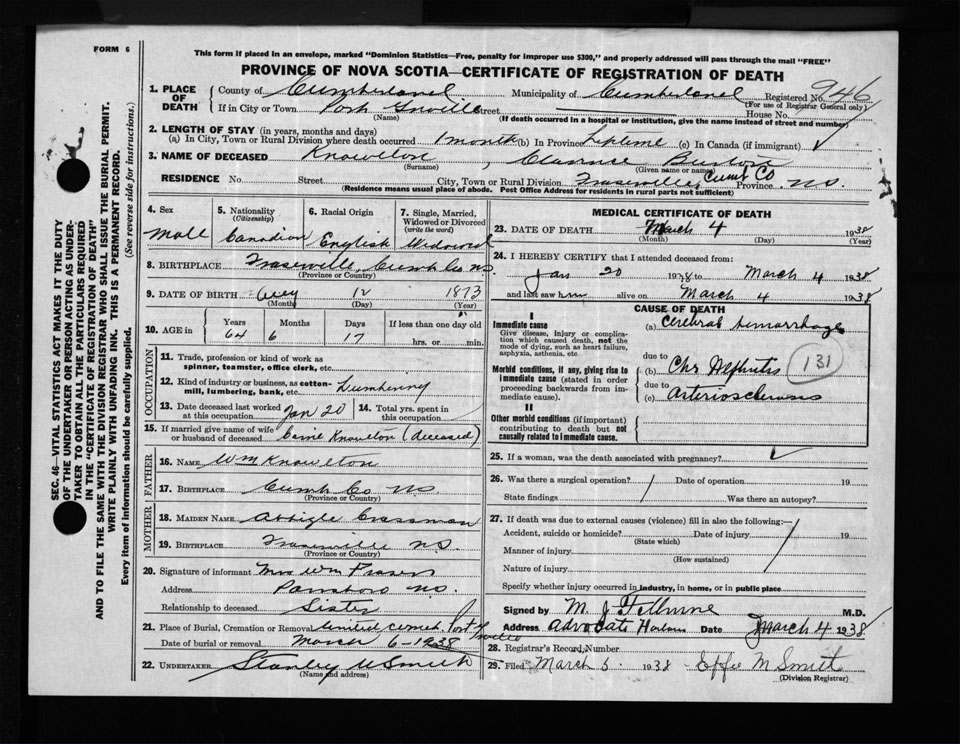 FORM 6
This form if placed in an envelope, marked "Dominion Statistics—Free, penalty for improper use $300," and properly addressed will pass through the mail "FREE"
PROVINCE OF NOVA SCOTIA—CERTIFICATE OF REGISTRATION OF DEATH
1. PLACE OF DEATH County of Cumberland Municipality of Cumberland Registered No. 946
(For use of Registrar General only)
If in City or Town Port Greville Street House No.
(Name) (If death occurred in a hospital or institution, give the name instead of street and number)
2. LENGTH OF STAY (in years, months and days)
(a) In City, Town or Rural Division where death occurred 1 month (b) In Province Lifetime (c) In Canada (if immigrant)
3. NAME OF DECEASED Knowlton, Clarence
(Surname) (Given name or names)
RESIDENCE No. Street City, Town or Rural Division Fraserville, Cumb Co Province N.S.
(Residence means usual place of abode. Post Office Address for residents in rural parts not sufficient)
4. Sex Male
5. Nationality (Citizenship) Canadian
6. Racial Origin English
7. Single, Married, Widowed or Divorced (write the word) Widowed
8. BIRTHPLACE Fraserville, Cumb Co. N.S.
(Province or Country)
9. DATE OF BIRTH 12 1873
(Month) (Day) (Year)
10. AGE in Years Months Days If less than one day old
64 6 17 hrs. or min.
OCCUPATION
11. Trade, profession or kind of work as spinner, teamster, office clerk, etc.
12. Kind of industry or business, as cotton-mill, lumbering, bank, etc. Lumbering
13. Date deceased last worked at this occupation Jan 20
14. Total yrs. spent in this occupation
15. If married give name of wife or husband of deceased Carrie Knowlton (deceased)
FATHER
16. NAME Wm Knowlton
17. BIRTHPLACE Cumb Co. N.S.
(Province or Country)
MOTHER
18. MAIDEN NAME Crossman
19. BIRTHPLACE Fraserville N.S.
(Province or Country)
20. Signature of informant Mrs Wm Fraser
Address Parrsboro N.S.
Relationship to deceased Sister
21. Place of Burial, Cremation or Removal United cemet. Port Greville
Date of burial or removal March 6-1938
22. UNDERTAKER Stanley Smith
(Name and address)
MEDICAL CERTIFICATE OF DEATH
23. DATE OF DEATH March 4 1938
(Month) (Day) (Year)
24. I HEREBY CERTIFY that I attended deceased from:
Jan 20 1938 to March 4 1938
and last saw him alive on March 4 1938
CAUSE OF DEATH
I
Immediate cause
Give disease, injury or complication which caused death, not the mode of dying, such as heart failure, asphyxia, asthenia, etc
(a) Cerebral hemorrhage
Morbid conditions, if any, giving rise to immediate cause (stated in order proceeding backwards from immediate cause).
due to
(b) Chr Nephritis 131
due to
(c) Arteriosclerosis
II
Other morbid conditions (if important) contributing to death but not causally related to immediate cause.
25. If a woman, was the death associated with pregnancy?
26. Was there a surgical operation? Date of operation 19
State findings Was there an autopsy?
27. If death was due to external causes (violence) fill in also the following:—
Accident, suicide or homicide? Date of injury 19
(State which)
Manner of injury
(How sustained)
Nature of injury
Specify whether injury occurred in industry, in home, or in public place
Signed by M. J. M.D.
Address Advocate Harbour Date March 4 1938
28. Registrar's Record Number
29. Filed March 5 1938 Effie M Smith
(Division Registrar)
SEC. 46—VITAL STATISTICS ACT MAKES IT THE DUTY
OF THE UNDERTAKER OR PERSON ACTING AS UNDER-
TAKER TO OBTAIN ALL THE PARTICULARS REQUIRED
IN THE "CERTIFICATE OF REGISTRATION OF DEATH"
AND TO FILE THE SAME WITH THE DIVISION REGISTRAR WHO SHALL ISSUE THE BURIAL PERMIT.
WRITE PLAINLY WITH UNFADING INK. THIS IS A PERMANENT RECORD.
Every item of information should be carefully supplied. (See reverse side for instructions.)